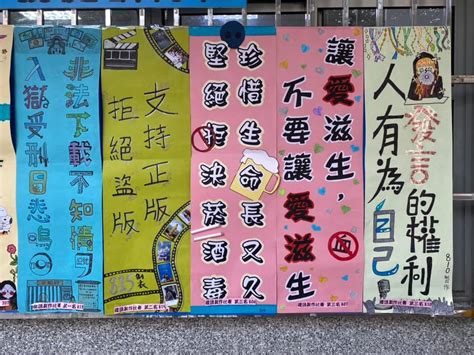 非法下載不知情，
入獄受刑日悲鳴
支持正版
拒絕盜版
珍惜生命長又久
堅絕拒決菸酒毒
讓愛滋生，
不要讓愛滋生
人有為自己
發言的權利